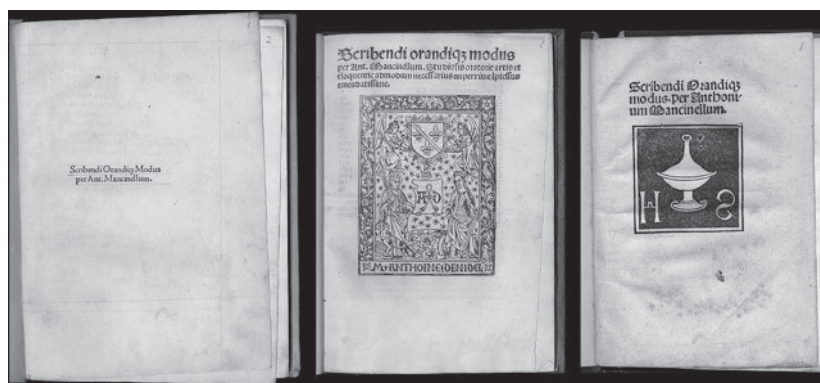 1
2
Scribendi Orandiq; Modus
per Ant. Mancinellum.
1
Scribendi orandiq; modus
per Ant. Mancinellum. Studiosis oratorie artis et
eloquentie admodum necessarius nuperrime īpressus
emendatissime.
AD
M·ANTHOINE·DENIDEL
1
Scribendi Orandiq;
modus·per Anthoni-
um Mancinellum.
H S